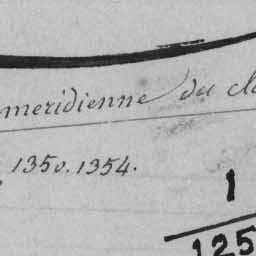 meridienne du cl
1350. 1354.
1
125